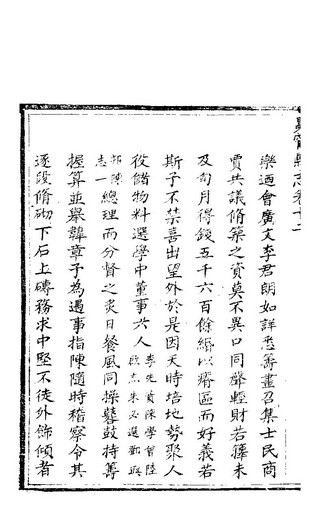 縣志卷十二
樂適會廣文李君朗如詳悉籌畫召集士民商
賈共議脩築之資莫不異口同聲輕財若籜未
及旬月得錢五千六百餘緡以瘠區而好義若
斯予不禁喜出望外於是因天時培地勢聚人
役儲物料選學中董事六人李光 陳學 陸
杰朱必選鄭
祁陳
志一總理而分督之炎日餐風同操鼛鼓持籌
握算並舉韓章予為遇事指陳隨時稽察令其
逐段脩砌下石上磚務求中堅不徒外飾傾者